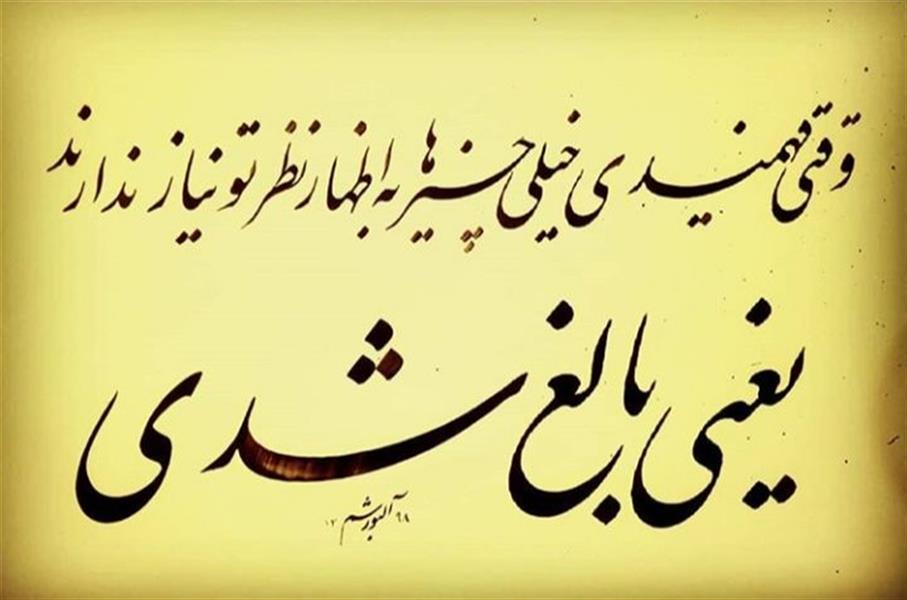 وقتی فهمیدی خیلی چیزها به اظهار نظر تو نیاز ندارند
یعنی بالغ شدی